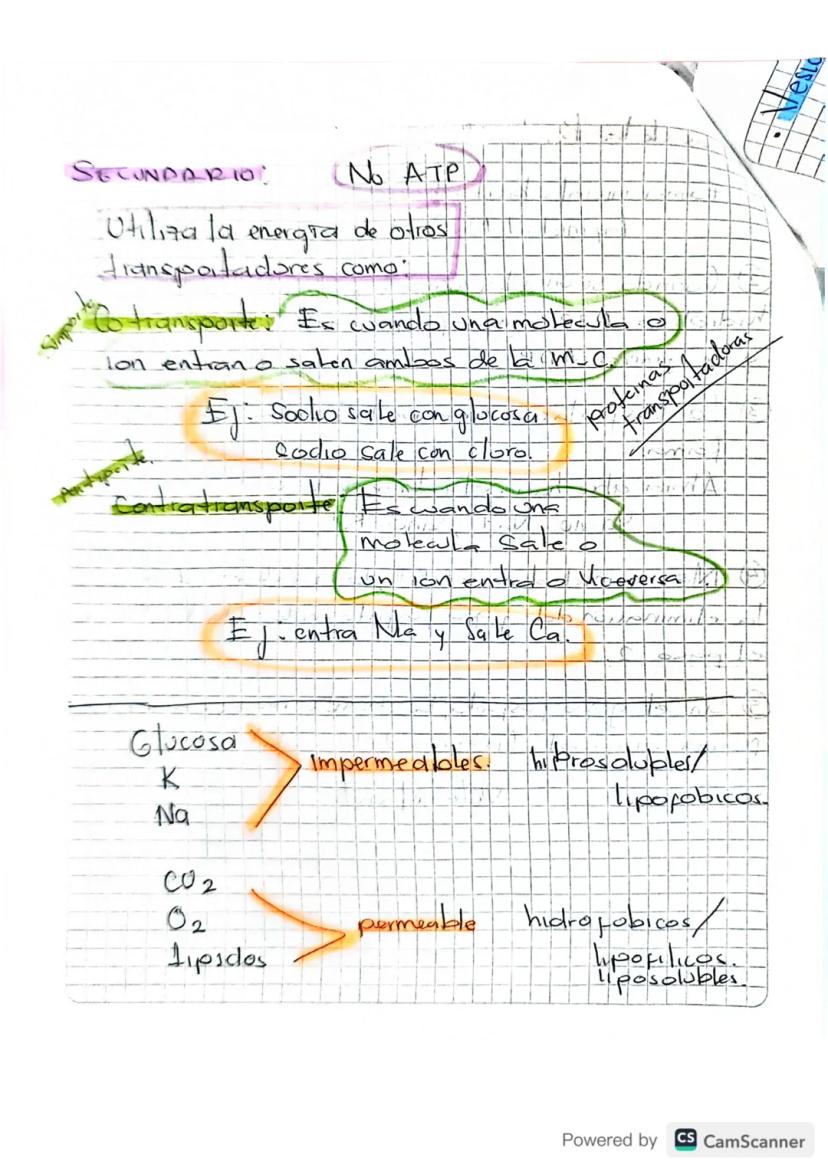 • Vesic
SECUNDARIO: No ATP
Utiliza la energia de otros
transportadores como:
Simporte
Cotransporte: Es cuando una molecula o
ion entran o salen ambos de la m-c.
proteinas
transportadoras
Ej: Sodio sale con glucosa.
Sodio sale con cloro.
Antiporte.
Contratransporte: Es cuando una
molecula sale o
un ion entra o viceversa.
Ej: entra Na y Sale Ca.
Glucosa
K
Na
impermeables. hidrosolubles/
lipofobicos.
CO2
O2
Lipidos
permeable hidrofobicos/
lipofilicos.
liposolubles.
Powered by CS CamScanner